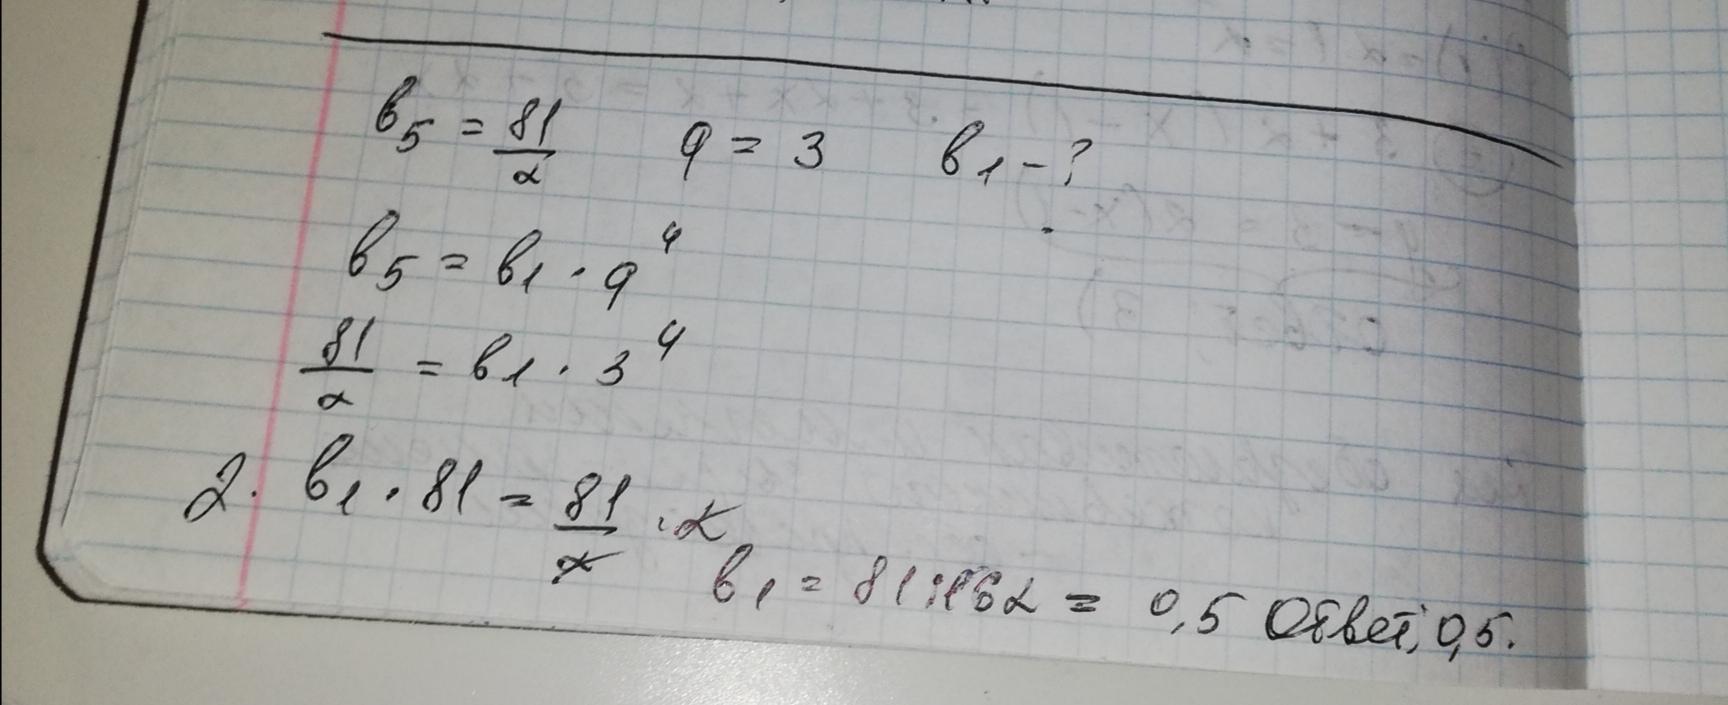 b₅ = 81/2 q = 3 b₁ - ?
b₅ = b₁ · q⁴
81/2 = b₁ · 3⁴
2 · b₁ · 81 = 81/2 · 2
b₁ = 81 : 162 = 0,5 Ответ: 0,5.